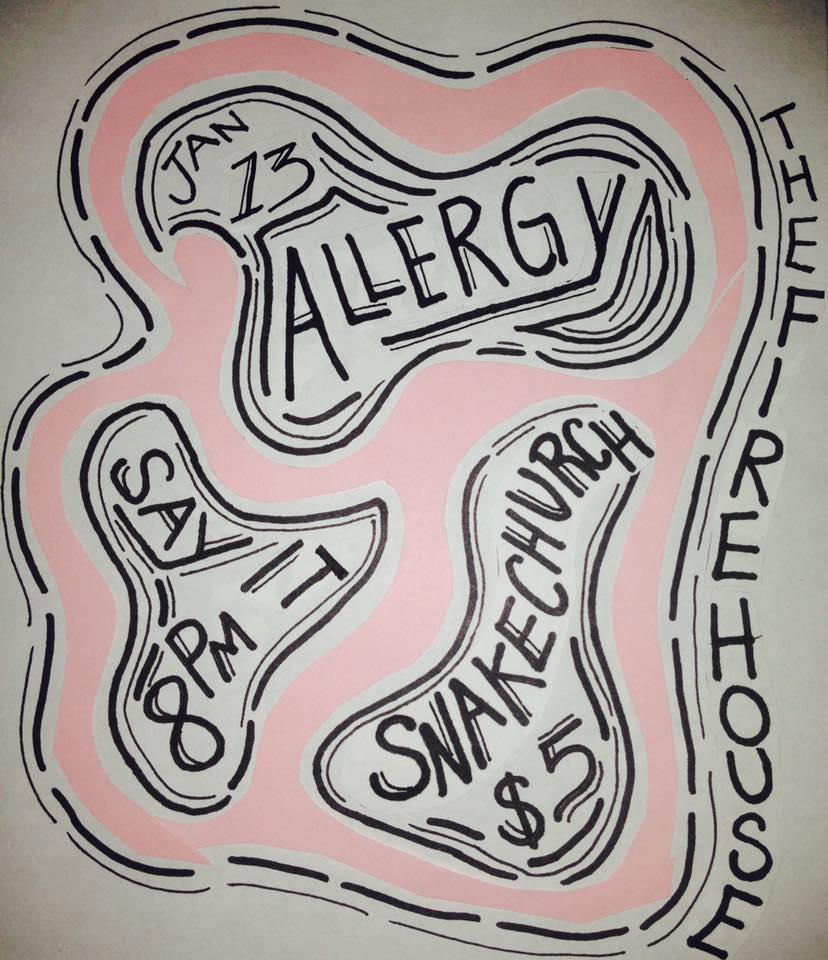 JAN
13
ALLERGY
SAY IT
8PM
SNAKECHURCH
$5
THE FIREHOUSE